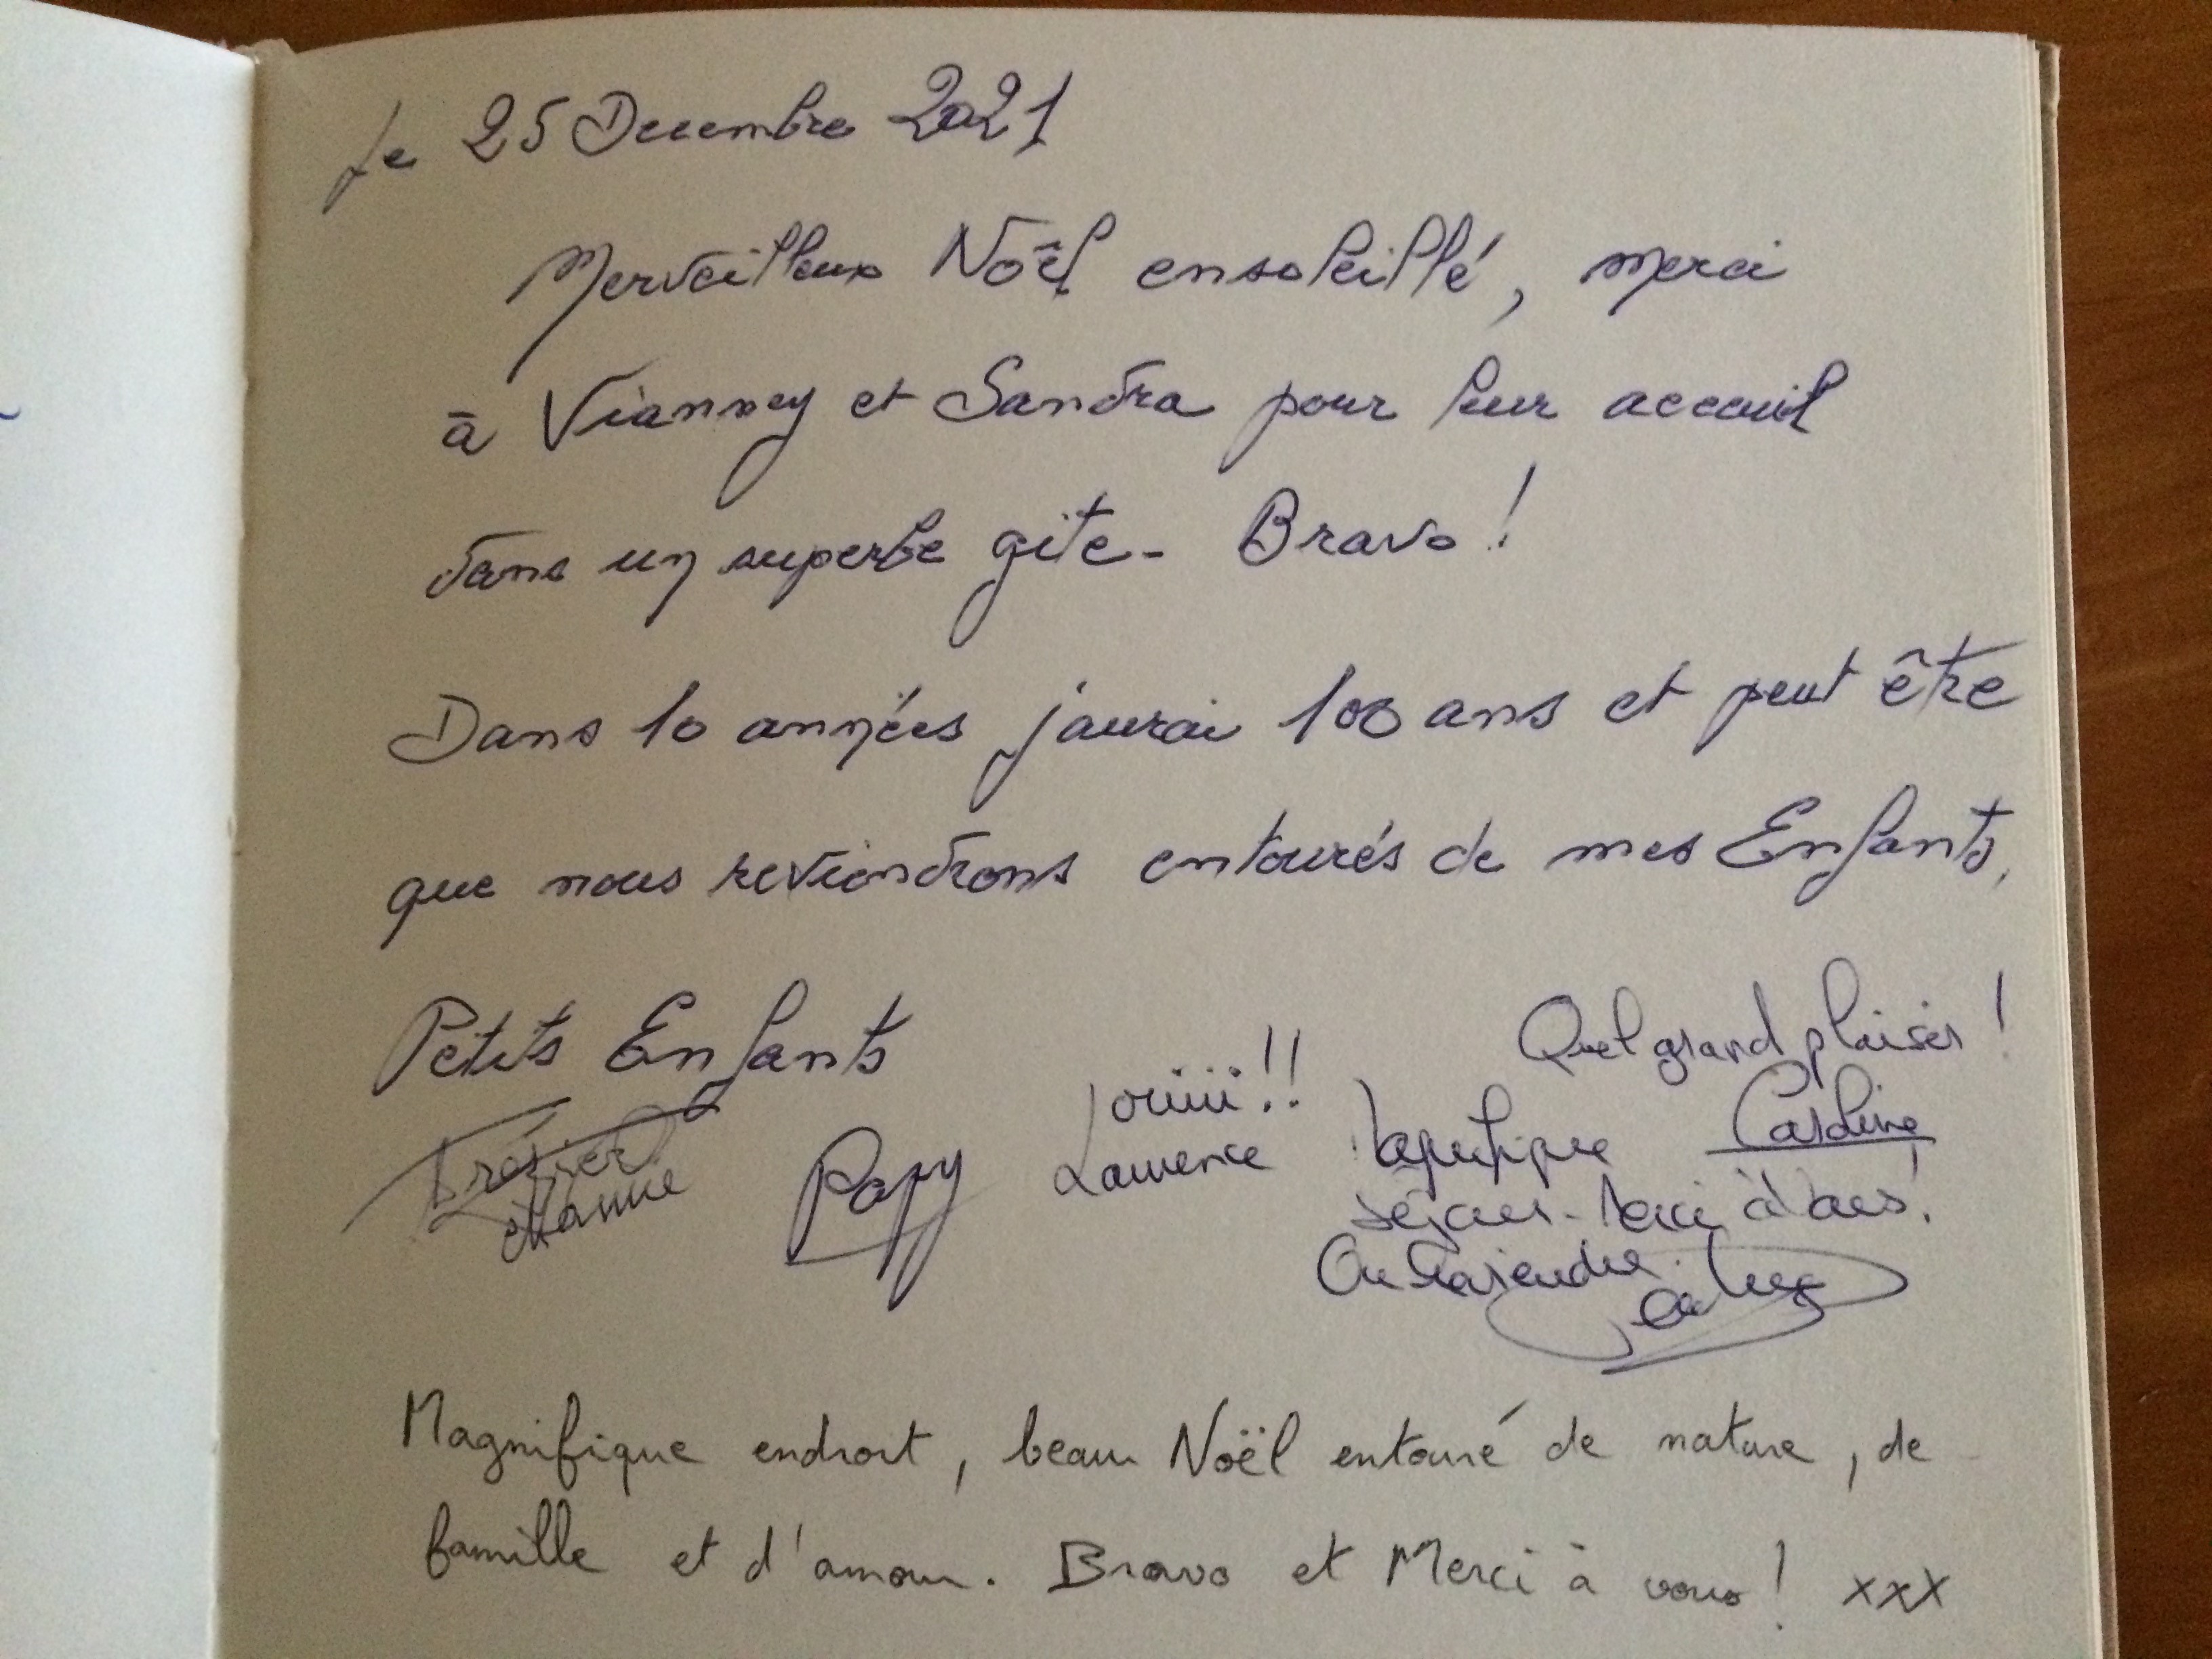 Le 25 Decembre 2021
Merveilleux Noël ensoleillé, merci
à Vianney et Sandra pour leur acceuil
dans un superbe gite - Bravo !
Dans 10 années j'aurai 100 ans et peut être
que nous reviendrons entourés de mes Enfants,
Petits Enfants
Mamie
Papy
ouiiii !!
Laurence
Quel grand plaisir !
Caroline
Magnifique
séjour - Merci à vous !
On reviendra.
Magnifique endroit, beau Noël entouré de nature, de
famille et d'amour. Bravo et Merci à vous ! xxx